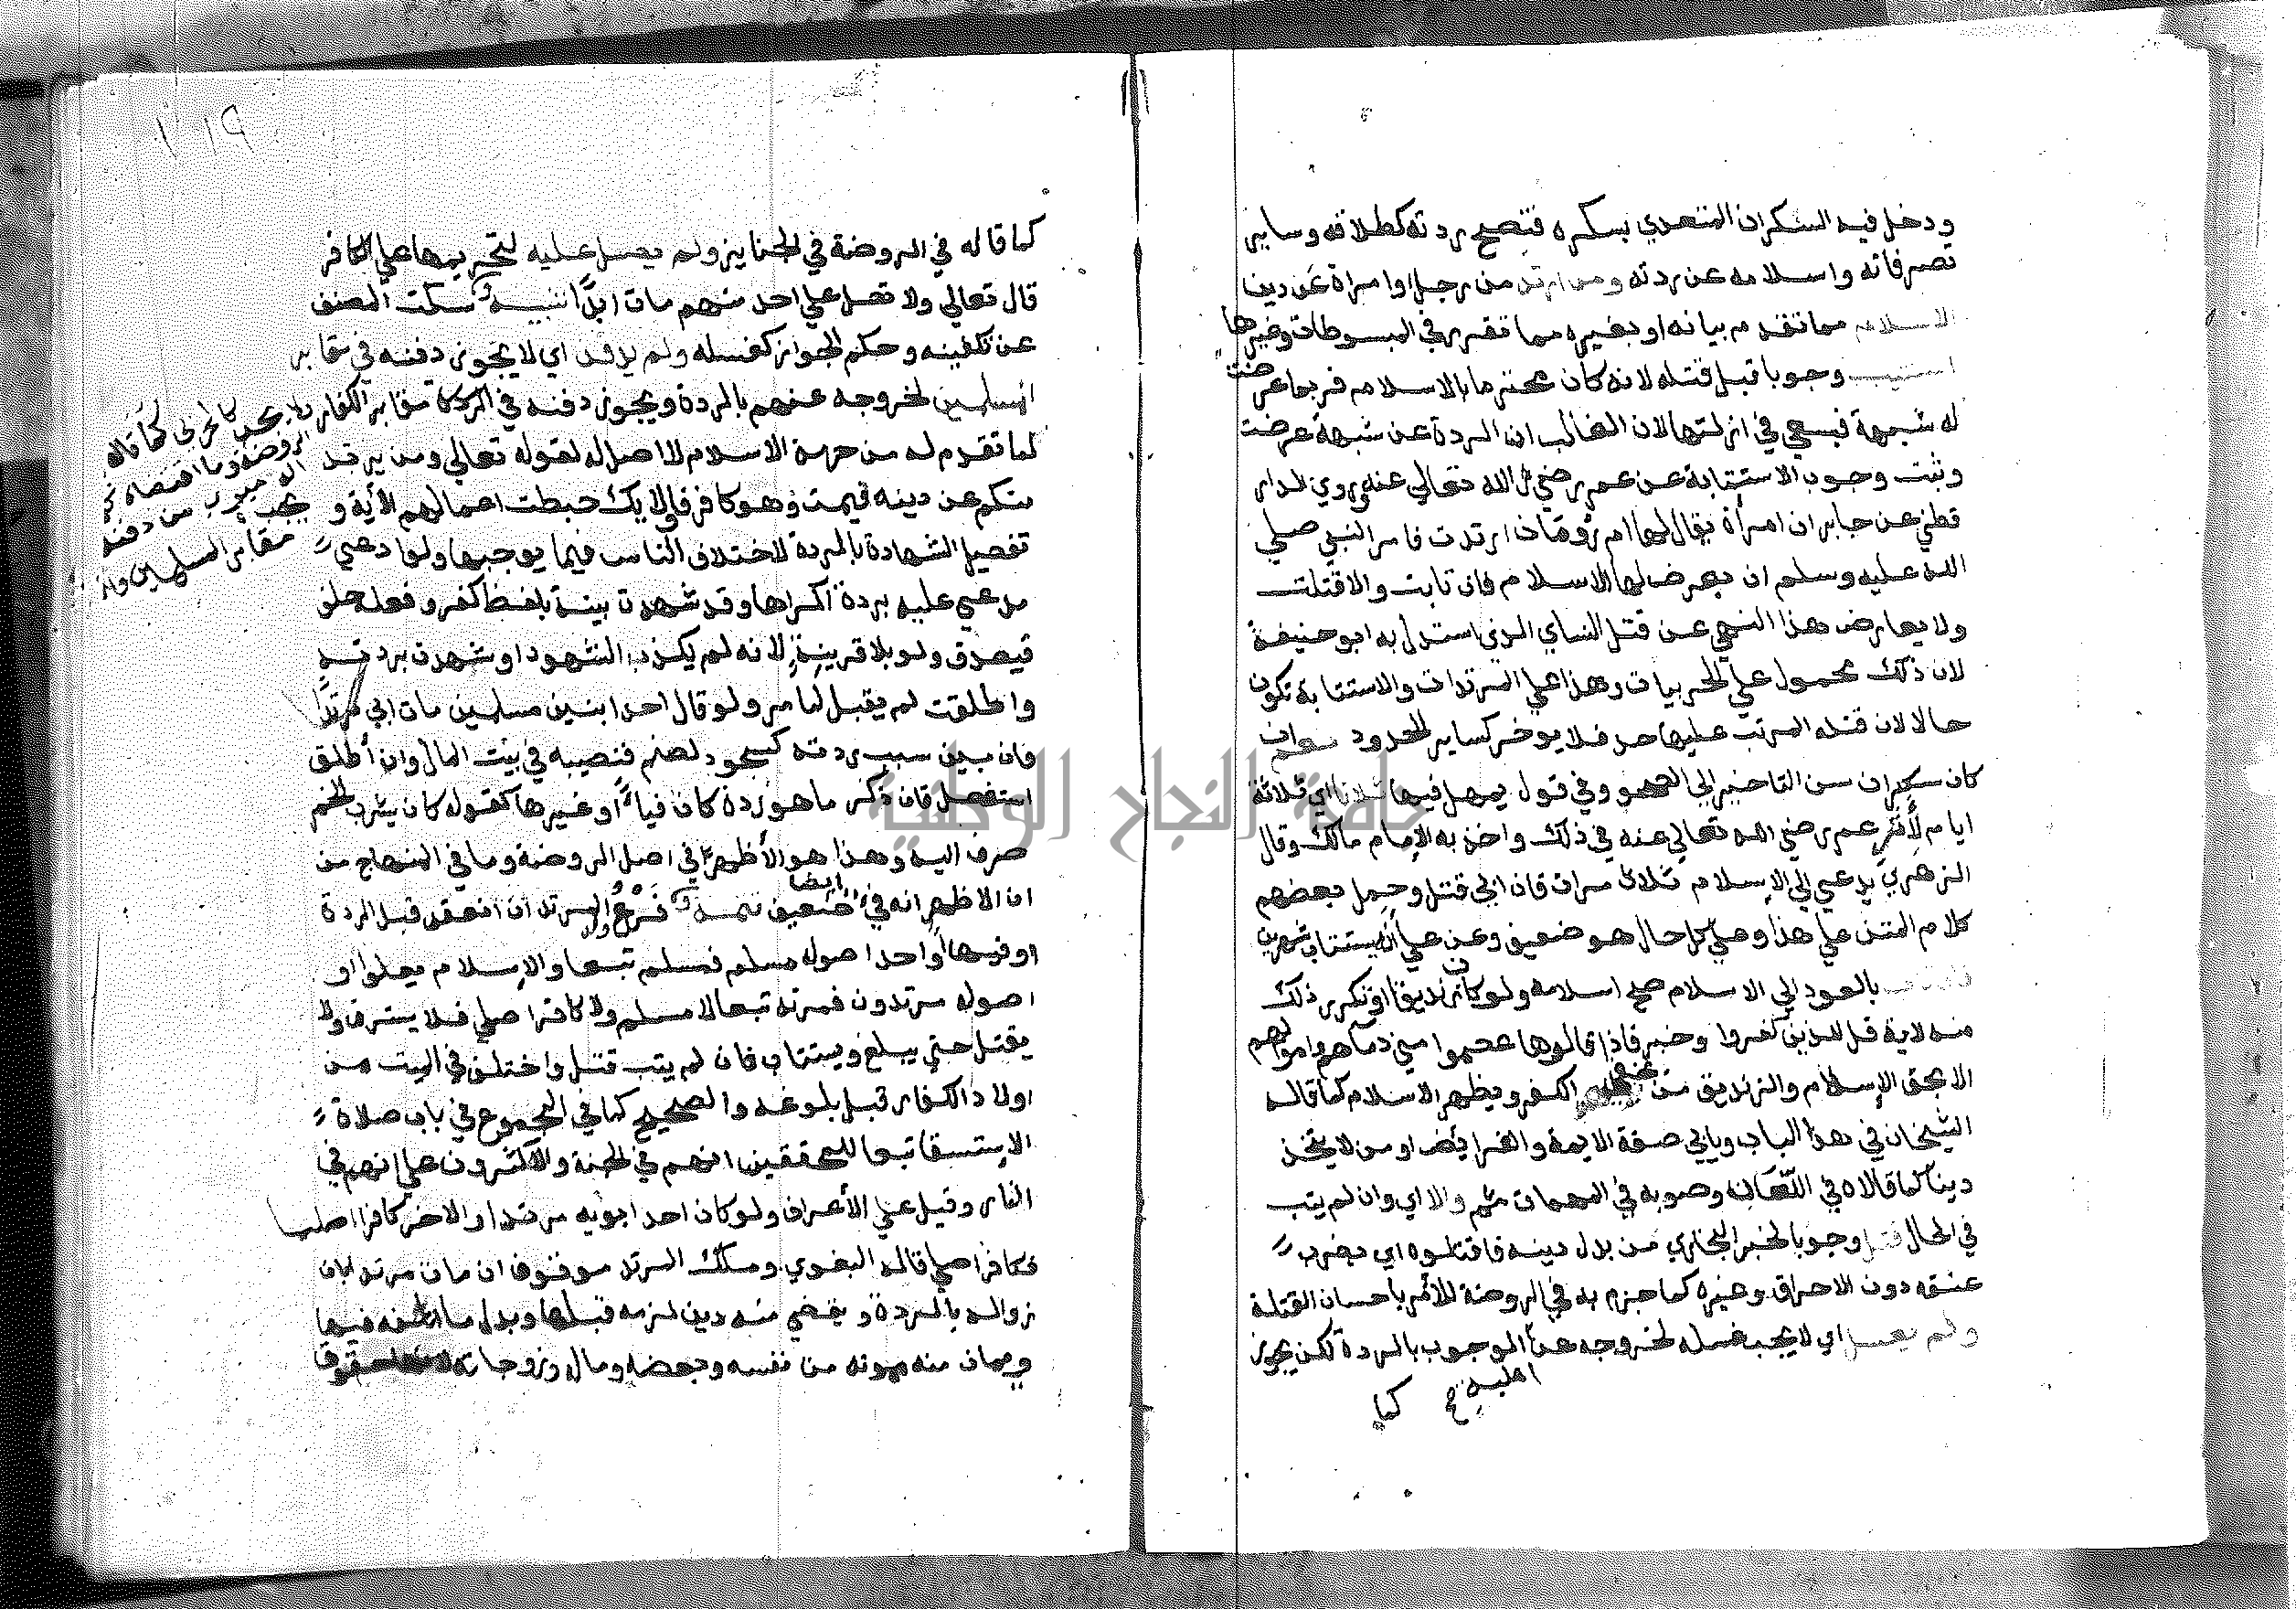 ودخل فيه السكران المتعدي بسكره فتصح ردته كطلاقه وساير
تصرفاته واسلامه عن ردته ومن ارتد من رجل او امراة عن دين
الاسلام مما تقدم بيانه او بغيره مما تقرر في المبسوطات وغيرها
استتيب وجوبا قبل قتله لانه كان محترما بالاسلام فربما عرضت
له شبهة فيسعي في ازالتها لان الغالب ان الردة عن شبهة عرضت
وثبت وجوب الاستتابة عن عمر رضي الله تعالي عنه وروي الدار
قطني عن جابر ان امرأة يقال لها ام رومان ارتدت فامر النبي صلي
الله عليه وسلم ان يعرض لها الاسلام فان تابت والا قتلت
ولا يعارض هذا النهي عن قتل النساي الذي استدل به ابو حنيفة
لان ذلك محمول علي الحربيات وهذا علي المرتدات والاستتابة تكون
حالا لان قتله المرتب عليها حد فلا يوخر كساير الحدود نعم ان
كان سكران سن التاخير الي الصحو وفي قول يمهل فيها ثلاثا اي ثلاثة
ايام لأثر عمر رضي الله تعالي عنه في ذلك واخذ به الإمام مالك وقال
الزهري يدعي الي الإسلام ثلاث مرات فان ابي قتل وحمل بعضهم
كلام المتن علي هذا وعلي كل حال هو ضعيف وعن علي أنه يستتاب شهرين
فان تاب بالعود الي الاسلام صح اسلامه ولو كان زنديقا او تكرر ذلك
منه لاية قل للذين كفروا وخبر فاذا قالوها عصموا مني دماهم واموالهم
الا بحق الإسلام والزنديق من يخفي الكفر ويظهر الاسلام كما قاله
الشيخان في هذا الباب وبابي صفة الايمة والفرايض او من لا يتخذ
دينا كما قالاه في اللعان وصوبه في المهمات ثم والا اي وان لم يتب
في الحال قتل وجوبا لخبر البخاري من بدل دينه فاقتلوه اي بضرب
عنقه دون الاحراق وغيره كما جزم به في الروضة للأمر باحسان القتلة
ولم يغسل اي لا يجب غسله لخروجه عن اهلية الوجوب بالردة لكن يجوز
كما
كما قاله في الروضة في الجنايز ولم يصل عليه لتحريمها علي الكافر
قال تعالي ولا تصل علي احد منهم مات ابدًا تنبيه سكت المصنف
عن تكفينه وحكم الجواز كغسله ولم يدفن اي لا يجوز دفنه في مقابر
المسلمين لخروجه عنهم بالردة ويجوز دفنه في مقابر الكفار ولا يجب كالحربي كما قاله
الروضة وما اقتضاه
الدميري من دفنه
مقابر المسلمين وان
لما تقدم له من حرمة الاسلام لا اصل له لقوله تعالي ومن يرتدد
منكم عن دينه فيمت وهو كافر فاولايك حبطت اعمالهم الأية و يجب
تفصيل الشهادة بالردة لاختلاف الناس فيما يوجبها ولو ادعي
مدعي عليه بردة اكراها وقد شهدت بينة بلفظ كفر او فعله حلف
فيصدق ولو بلا قرينة لانه لم يكذب الشهود او شهدت بردته
واطلقت لم يقبل لما مر ولو قال احد ابنين مسلمين مات ابي مرتدًا
فان بين سبب ردته كسجود لصنم فنصيبه في بيت المال وان أطلق
استفصل فان ذكر ما هو ردة كان فيأ او غيرها كقوله كان يشرب الخمر
صرف اليه وهذا هو الأظهر في اصل الروضة وما في المنهاج من
ان الاظهر انه فيء ايضا ضعيف تتمة فرع ولد المرتد ان انعقد قبل الردة
او فيها واحد اصوله مسلم فمسلم تبعا والإسلام يعلوا او
اصوله مرتدون فمرتد تبعا لا مسلم ولا كافرا صلي فلا يسترق ولا
يقتل حتي يبلغ ويستتاب فان لم يتب قتل واختلف في الميت من
اولاد الكفار قبل بلوغه والصحيح كما في المجموع في باب صلاة
الإستسقا تبعا للمحققين انهم في الجنة والأكثرون علي انهم في
النار وقيل علي الأعراف ولو كان احد ابويه مرتدا والاخر كافرا اصليا
فكافر اصلي قاله البغوي وملك المرتد موقوف ان مات مرتدا بان
زواله بالردة ويقضي منه دين لزمه قبلها وبدل ما اتلفه فيها
ويمان منه ممونه من نفسه وبعضه وماله وزوجاته لانها حقوق
جامعة النجاح الوطنية